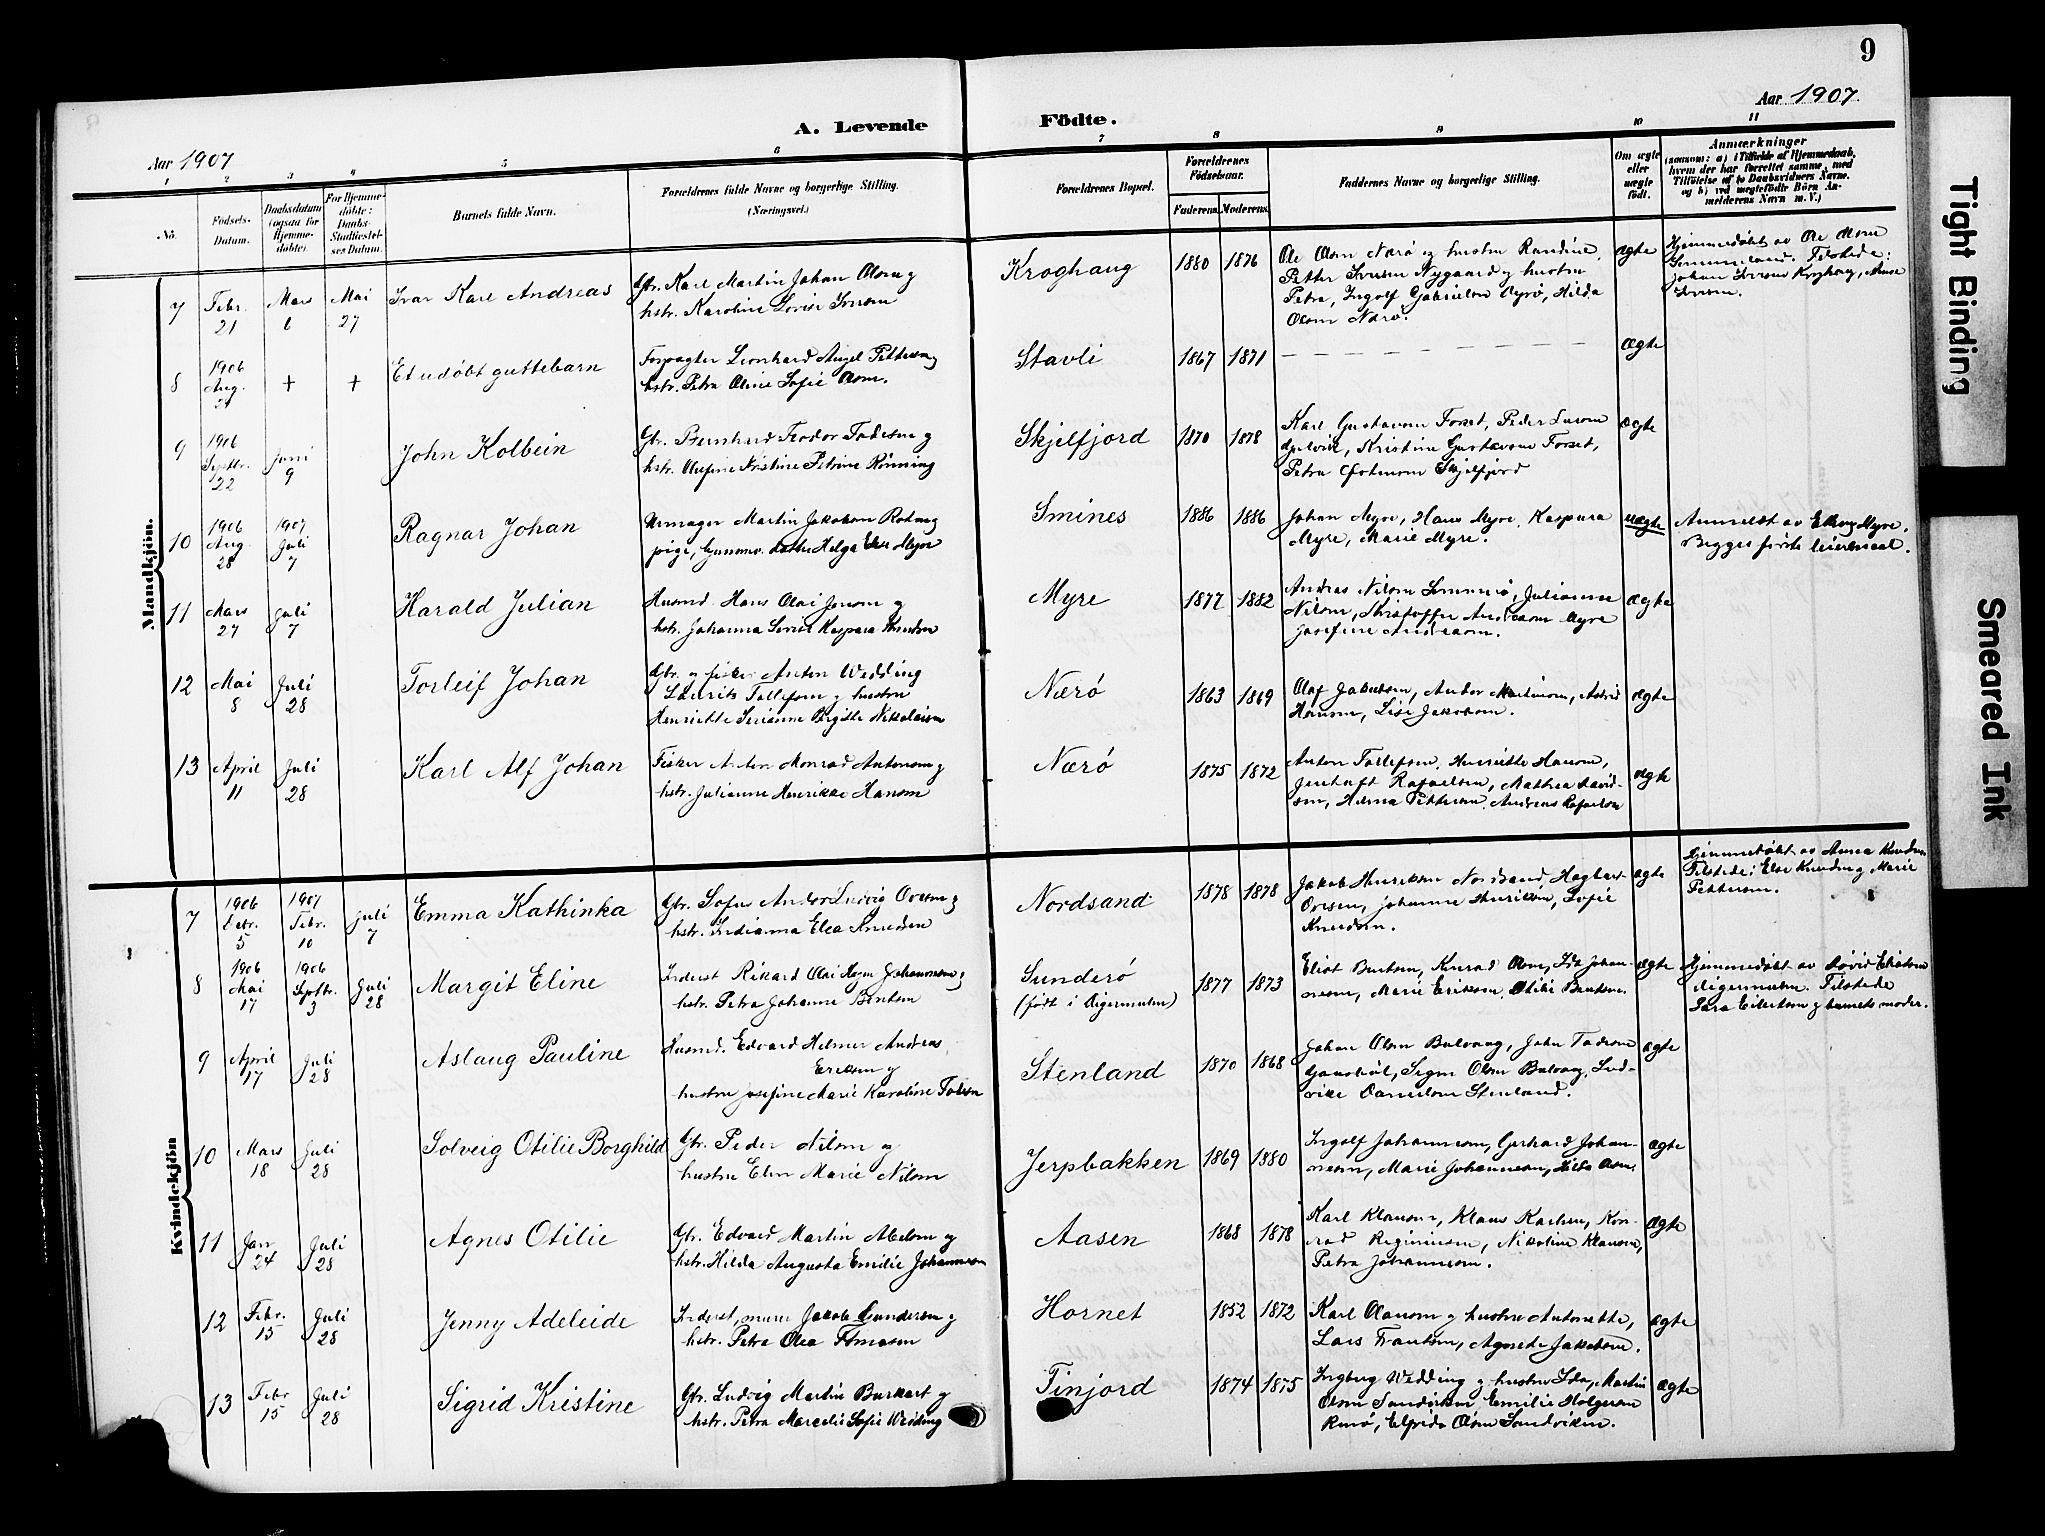 9
Aar 1907
A. Levende
Födte.
Aar 1907
1 2 3 4 5 6
7 8 9 10 11
No.
Födsels-Datum.
Daabsdatum (ogsaa for Hjemmedöbte).
For Hjemmedöbte: Daabs-Stadfæstelses Datum.
Barnets fulde Navn.
Forældrenes fulde Navne og borgerlige Stilling.
(Næringsvei.)
Forældrenes Bopæl.
Forældrenes Födselsaar.
Faderens Moderens
Faddernes Navne og borgerlige Stilling.
Om ægte eller uægte födt.
Anmærkninger
(saasom: a) i Tilfælde af Hjemmedaab, hvem der har forrettet samme, med Tilföielse af to Daabsvidners Navne. og b) ved uægtefödte Börn Anmelderens Navn m. V.)
Mandkjön.
7 Febr. 21 Mars 6 Mai 27 Ivar Karl Andreas
Gbr. Karl Martin Johan Olsen og
hstr. Karoline Lovise Iversen
Kroghaug 1880 1876
Ole Olsen Nærö og hustru Randine,
Petter Iversen Nygaard og hustru
Petra, Ingolf Gabrielsen Myrö, Hilda
Olsen Nærö.
ægte
Hjemmedöbt av Ole Olsen
Tilstede:
Johan Iversen Kroghaug, Anne
Iversen.
8 1906 Aug. 21 + + Et udöbt guttebarn
Forpagter Leonhard Angel Pettersen og
hstr. Petra Oline Sofie Olsen.
Stavli 1867 1871 — — — — — — ægte
9 1906 Septbr. 22 Juni 9 John Kolbein
Gbr. Bernhard Teodor Todesen og
hstr. Olufine Kristine Petrine Rönning
Skjelfjord 1870 1878
Karl Gustavsen Forset, Peder Larsen
Gjelvik, Kristine Gustavsen Forset,
Petra Skjelfjord
ægte
10 1906 Aug. 28 1907 Juli 7 Ragnar Johan
Urmager Martin Jakobsen
pige, datter Helga Else Myre
Smines 1886 1886
Johan Myre, Hans Myre, Kaspara
Myre, Marie Myre.
uægte
Anmeldt av Myre.
Begges förste leiermaal.
11 Mars 27 Juli 7 Harald Julian
Husmd. Hans Olai Jensen og
hstr. Johanna Lovise Kaspara Knudsen
Myre 1877 1882
Andreas Nilsen Sommerö, Julianne
Nilsen, Kristoffer Andreasen Myre
Josefine Andreasen.
ægte
12 Mai 8 Juli 28 Torleif Johan
Gbr. og fisker Anton Wedding
Laurits Tollefsen og hustru
Henriette Serianne Birgitte Nikolaisen
Nærö 1863 1869
Olaf Jakobsen, Anton Martinsen, Astrid
Hansen, Lise Jakobsen.
ægte
13 April 11 Juli 28 Karl Alf Johan
Fisker Anton Monrad Antonsen og
hstr. Julianne Henrikke Hansen
Nærö 1875 1872
Anton Tollefsen, Henriette Hansen,
Jentoft Rafaelsen, Mathea David-
sen, Helma Pettersen, Andreas Rafaelsen
ægte
Kvindekjön
7 1906 5 1907 Febr. 10 Juli 7 Emma Kathinka
Gbr. Sofus Andor Ludvig Ovesen og
hstr. Indianna Elea Knudsen
Nordsand 1878 1878
Jakob Henriksen Nordsand, Hagbart
Ovesen, Johanne Henriksen, Sofie
Knudsen.
ægte
Hjemmedöbt av Anna Knudsen
Tilstede: Else Knudsen og Marie
Pettersen.
8 1906 Mai 17 1906 Septbr. 3 Juli 28 Margit Eline
Inderst Rikard Olai Johannesen og
hstr. Petra Johanne Bentsen
Sunderö
(födt i Digermulen)
1877 1873
Eliot Bentsen, Konrad Olsen, Ida Johan-
nesen, Marie Eriksen, Otilie Bentsen.
ægte
Hjemmedöbt av
Digermulen. Tilstede
Sara Eilertsen og barnets moder.
9 April 17 Juli 28 Aslaug Pauline
Husmd. Edvard Helmer Andreas
Eriksen og
hustru Josefine Marie Karoline Todesen
Stenland 1870 1868
Johan Olsen Bulvaag, John Todesen
Signe Olsen Bulvaag, Lud-
vike Danielsen Stenland.
ægte
10 Mars 18 Juli 28 Solveig Otilie Borghild
Gbr. Peder Nilsen og
hustru Elen Marie Nilsen
Jerpbakken 1869 1880
Ingolf Johannesen, Gerhard Johan-
nesen, Marie Johannesen, Hilda Olsen
ægte
11 Jan 24 Juli 28 Agnes Otilie
Gbr. Edvard Martin Abelsen og
hstr. Hilda Augusta Emilie Johannesen
Aasen 1868 1878
Karl Klausen, Klaus Karlsen, Kon-
rad Reginiusen, Nikoline Klausen,
Petra Johannesen.
ægte
12 Febr. 15 Juli 28 Jenny Adeleide
Inderst, murer Jakob Gundersen og
hstr. Petra Olea Tomasen
Hornet 1852 1872
Karl Olausen og hustru Antonette,
Lars Frantsen, Agnete Jakobsen.
ægte
13 Febr 15 Juli 28 Sigrid Kristine
Gbr. Ludvig Martin Burkart og
hstr. Petra Marcelie Sofie Weding
Finjord 1874 1875
Ingberg Wedding og hustru Ida, Martin
Olsen Sandviken, Emilie Holgersen
Elfrida Olsen Sandviken.
ægte
Tight Binding
Smeared Ink